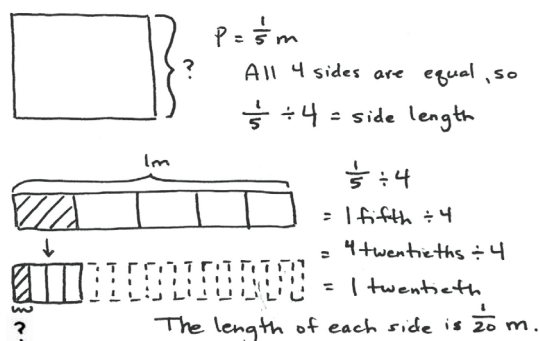 P = 1/5 m
?
All 4 sides are equal, so
1/5 ÷ 4 = side length
1m
1/5 ÷ 4
= 1 fifth ÷ 4
= 4 twentieths ÷ 4
= 1 twentieth
?
The length of each side is 1/20 m.